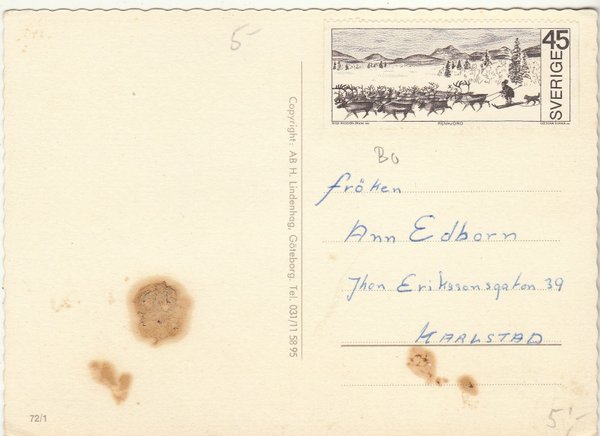 5-
45
SVERIGE
RENHJORD
Bo
fröken
Ann Edborn
Jhon Erikssonsgatan 39
KARLSTAD
Copyright: AB H. Lindenhag, Göteborg. Tel. 031/11 58 95
72/1
5:-